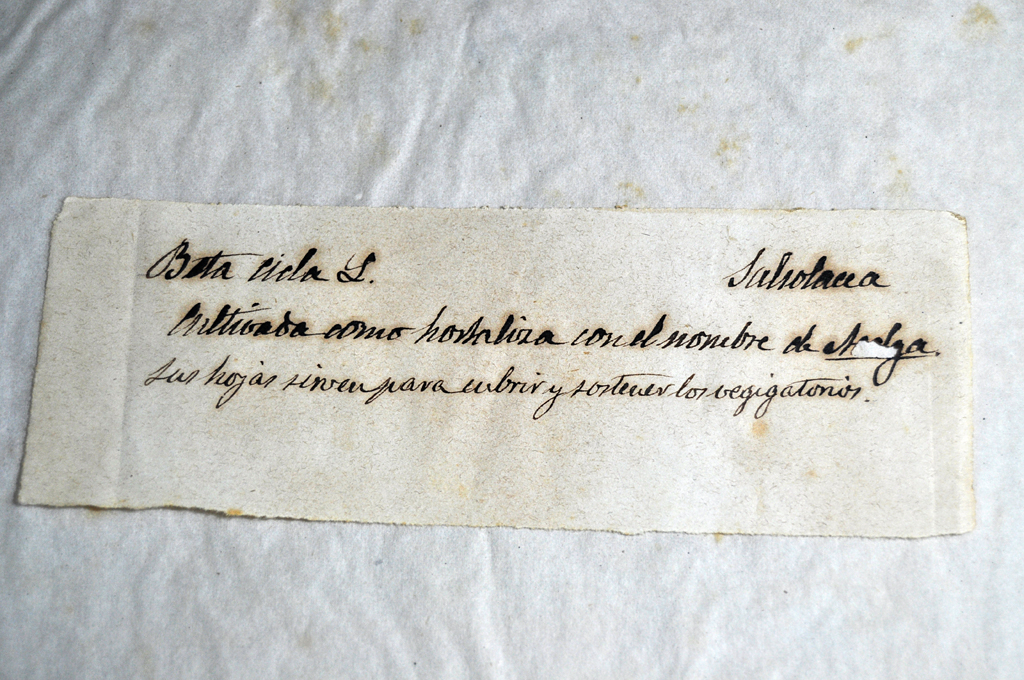 Beta cicla L. Salsolacea
Cultivada como hortaliza con el nombre de Acelga.
Sus hojas sirven para cubrir y sostener los vegigatorios.